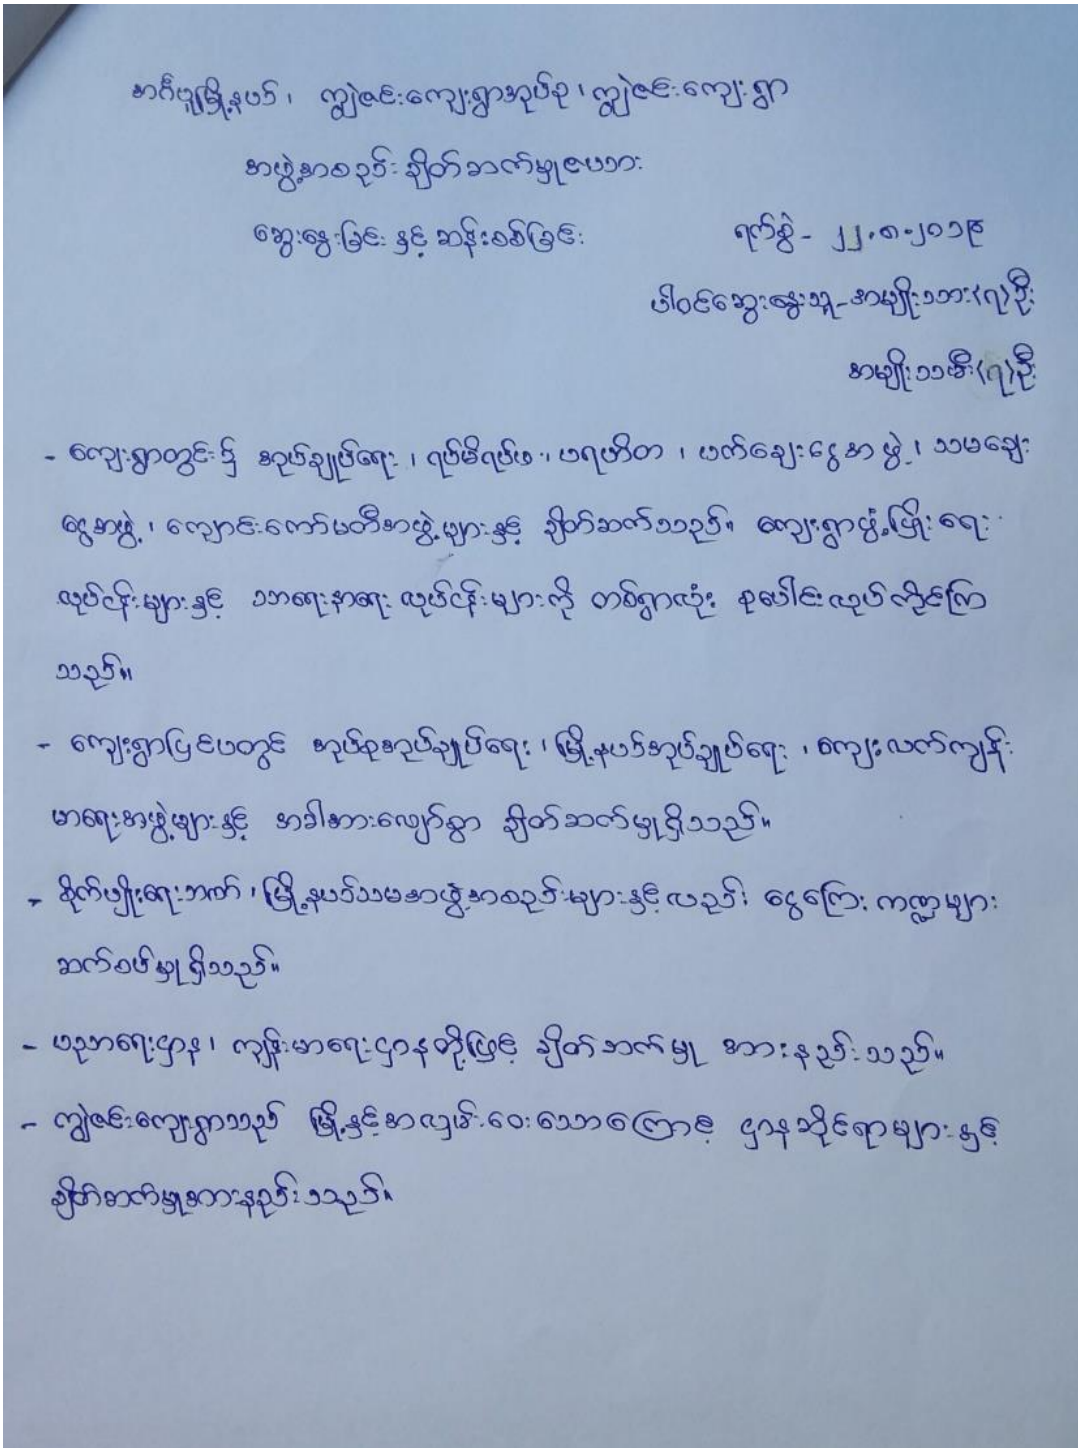 အင်္ဂပူမြို့နယ်၊ ကျွဲဇင်းကျေးရွာအုပ်စု၊ ကျွဲဇင်းကျေးရွာ
အဖွဲ့အစည်းချိတ်ဆက်မှုဇယား
ဆွေးနွေးခြင်းနှင့် ဆန်းစစ်ခြင်း
ရက်စွဲ - ၂၂.၈.၂၀၁၉
ပါဝင်ဆွေးနွေးသူ - အမျိုးသား(၇)ဦး
အမျိုးသမီး(၇)ဦး
- ကျေးရွာတွင်း၌ အုပ်ချုပ်ရေး၊ ရပ်မိရပ်ဖ၊ ပရဟိတ၊ ပက်ချေးငွေအဖွဲ့၊ သမချေး
ငွေအဖွဲ့၊ ကျောင်းကော်မတီအဖွဲ့များနှင့် ချိတ်ဆက်သည်။ ကျေးရွာဖွံ့ဖြိုးရေး
လုပ်ငန်းများနှင့် သာရေးနာရေးလုပ်ငန်းများကို တစ်ရွာလုံး စုပေါင်းလုပ်ကိုင်ကြ
သည်။
- ကျေးရွာပြင်ပတွင် အုပ်စုအုပ်ချုပ်ရေး၊ မြို့နယ်အုပ်ချုပ်ရေး၊ ကျေးလက်ကျန်း
မာရေးအဖွဲ့များနှင့် အခါအားလျော်စွာ ချိတ်ဆက်မှုရှိသည်။
- စိုက်ပျိုးရေးဘဏ်၊ မြို့နယ်သမအဖွဲ့အစည်းများနှင့်လည်း ငွေကြေးကဏ္ဍများ
ဆက်စပ်မှုရှိသည်။
- ပညာရေးဌာန၊ ကျန်းမာရေးဌာနတို့ဖြင့် ချိတ်ဆက်မှု အားနည်းသည်။
- ကျွဲဇင်းကျေးရွာသည် မြို့နှင့်အလှမ်းဝေးသောကြောင့် ဌာနဆိုင်ရာများနှင့်
ချိတ်ဆက်မှုအားနည်းသည်။